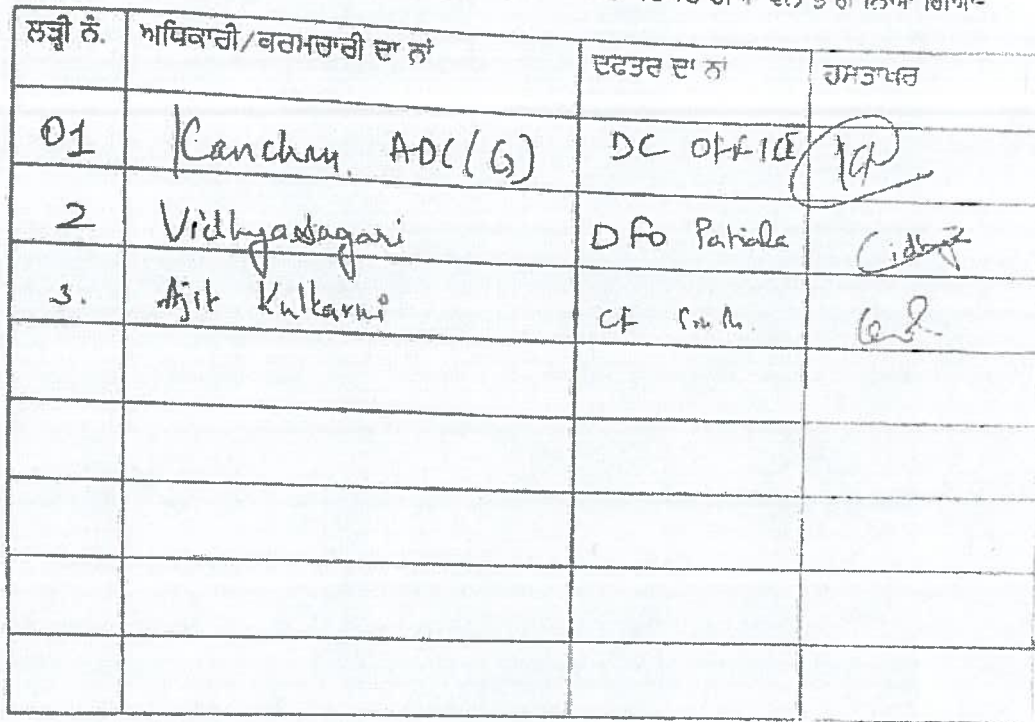 ਲੜੀ ਨੰ. ਅਧਿਕਾਰੀ/ਕਰਮਚਾਰੀ ਦਾ ਨਾਂ ਦਫਤਰ ਦਾ ਨਾਂ ਹਸਤਾਖਰ
01 Kanchan ADC (G) DC OFFICE
2 Vidhyasagari DFO Patiala
3. Ajit Kulkarni CF